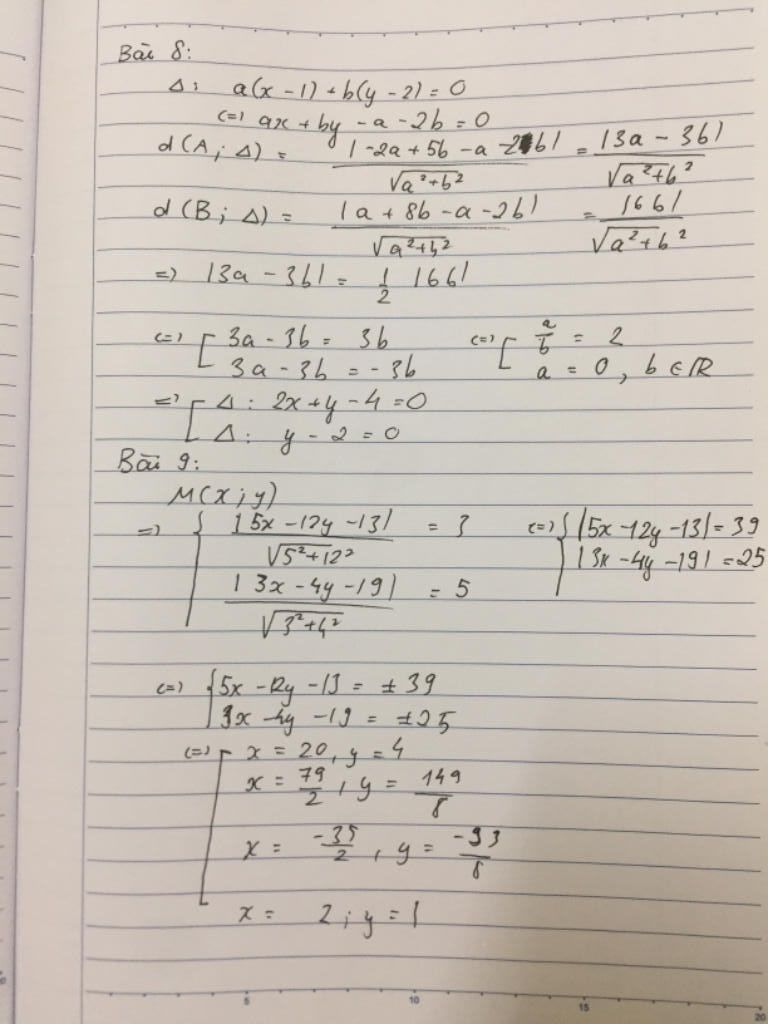 Bài 8:
Δ: a(x - 1) + b(y - 2) = 0
(=) ax + by - a - 2b = 0
d(A; Δ) = |-2a + 5b - a - 2b| / √a² + b² = |3a - 3b| / √a² + b²
d(B; Δ) = |a + 8b - a - 2b| / √a² + b² = |6b| / √a² + b²
=) |3a - 3b| = 1/2 |6b|
(=) [ 3a - 3b = 3b (=) [ a/b = 2
3a - 3b = -3b a = 0, b ∈ ℝ
=) [ Δ: 2x + y - 4 = 0
Δ: y - 2 = 0
Bài 9:
M(x; y)
=) { |5x - 12y - 13| / √5² + 12² = 3 (=) { |5x - 12y - 13| = 39
|3x - 4y - 19| / √3² + 4² = 5 |3x - 4y - 19| = 25
(=) { 5x - 12y - 13 = ± 39
3x - 4y - 19 = ± 25
(=) [ x = 20, y = 4
x = 79/2, y = 149/8
x = -35/2, y = -93/8
x = 2; y = 1
5 10 15 20